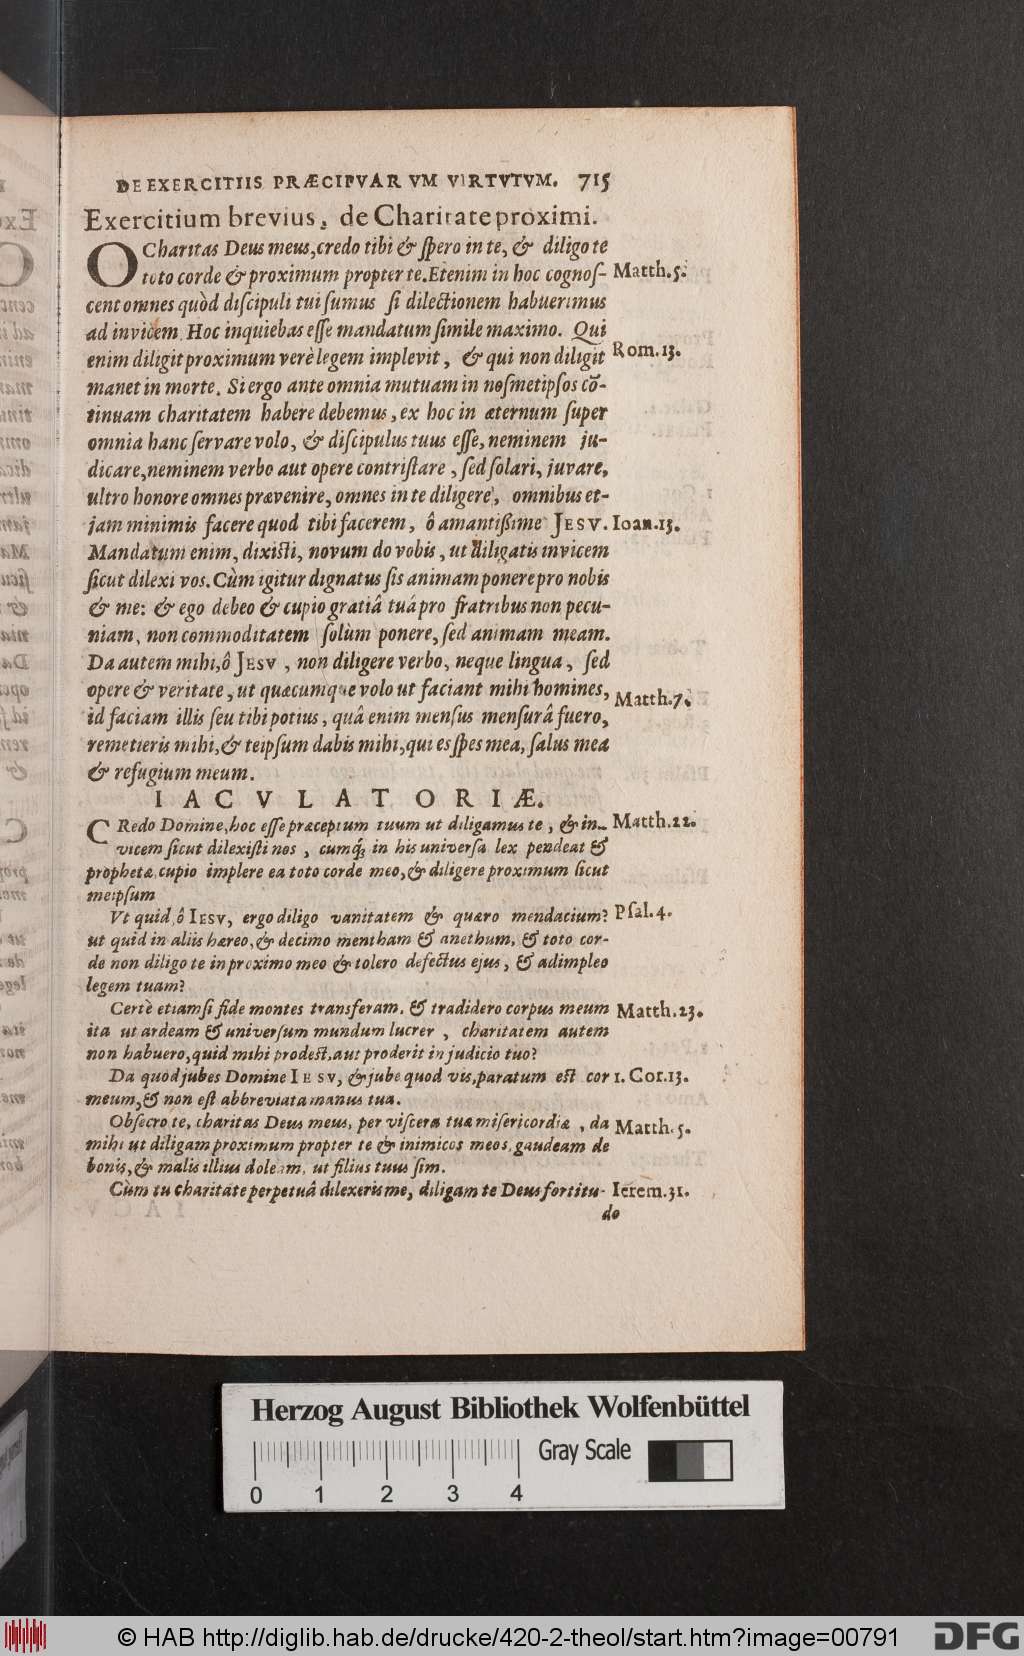 DE EXERCITIIS PRÆCIPVARVM VIRTVTVM. 715
Exercitium brevius, de Charitate proximi.
O Charitas Deus meus, credo tibi & spero in te, & diligo te
toto corde & proximum propter te. Etenim in hoc cognos- Matth.5.
cent omnes quòd discipuli tui sumus si dilectionem habuerimus
ad invicem. Hoc inquiebas esse mandatum simile maximo. Qui
enim diligit proximum verè legem implevit, & qui non diligit Rom.13.
manet in morte. Si ergo ante omnia mutuam in nosmetipsos cō-
tinuam charitatem habere debemus, ex hoc in æternum super
omnia hanc servare volo, & discipulus tuus esse, neminem ju-
dicare, neminem verbo aut opere contristare, sed solari, juvare,
ultro honore omnes prævenire, omnes in te diligere, omnibus et-
jam minimis facere quod tibi facerem, ô amantißime JESV. Ioan.13.
Mandatum enim, dixisti, novum do vobis, ut diligatis invicem
sicut dilexi vos. Cùm igitur dignatus sis animam ponere pro nobis
& me: & ego debeo & cupio gratiâ tuá pro fratribus non pecu-
niam, non commoditatem solùm ponere, sed animam meam.
Da autem mihi, ô JESV, non diligere verbo, neque lingua, sed
opere & veritate, ut quæcumque volo ut faciant mihi homines, Matth.7.
id faciam illis seu tibi potius, quâ enim mensus mensurâ fuero,
remetieris mihi, & teipsum dabis mihi, qui es spes mea, salus mea
& refugium meum.
IACVLATORIÆ.
CRedo Domine, hoc esse præceptum tuum ut diligamus te, & in- Matth.22.
vicem sicut dilexisti nos, cumq; in his universa lex pendeat &
prophetæ, cupio implere ea toto corde meo, & diligere proximum sicut
meipsum
Vt quid, ô IESV, ergo diligo vanitatem & quæro mendacium? Psal.4.
ut quid in aliis hæreo, & decimo mentham & anethum, & toto cor-
de non diligo te in proximo meo & tolero defectus ejus, & adimpleo
legem tuam?
Certè etiamsi fide montes transferam, & tradidero corpus meum Matth.23.
ita ut ardeam & universum mundum lucrer, charitatem autem
non habuero, quid mihi prodest, aut proderit in judicio tuo?
Da quod jubes Domine IESV, & jube quod vis, paratum est cor 1. Cor.13.
meum, & non est abbreviata manus tua.
Obsecro te, charitas Deus meus, per viscera tuæ misericordiæ, da Matth.5.
mihi ut diligam proximum propter te & inimicos meos, gaudeam de
bonis, & malis illius doleam, ut filius tuus sim.
Cùm tu charitate perpetuâ dilexeris me, diligam te Deus fortitu- Ierem.31.
do
Herzog August Bibliothek Wolfenbüttel
Gray Scale
0 1 2 3 4
© HAB http://diglib.hab.de/drucke/420-2-theol/start.htm?image=00791
DFG